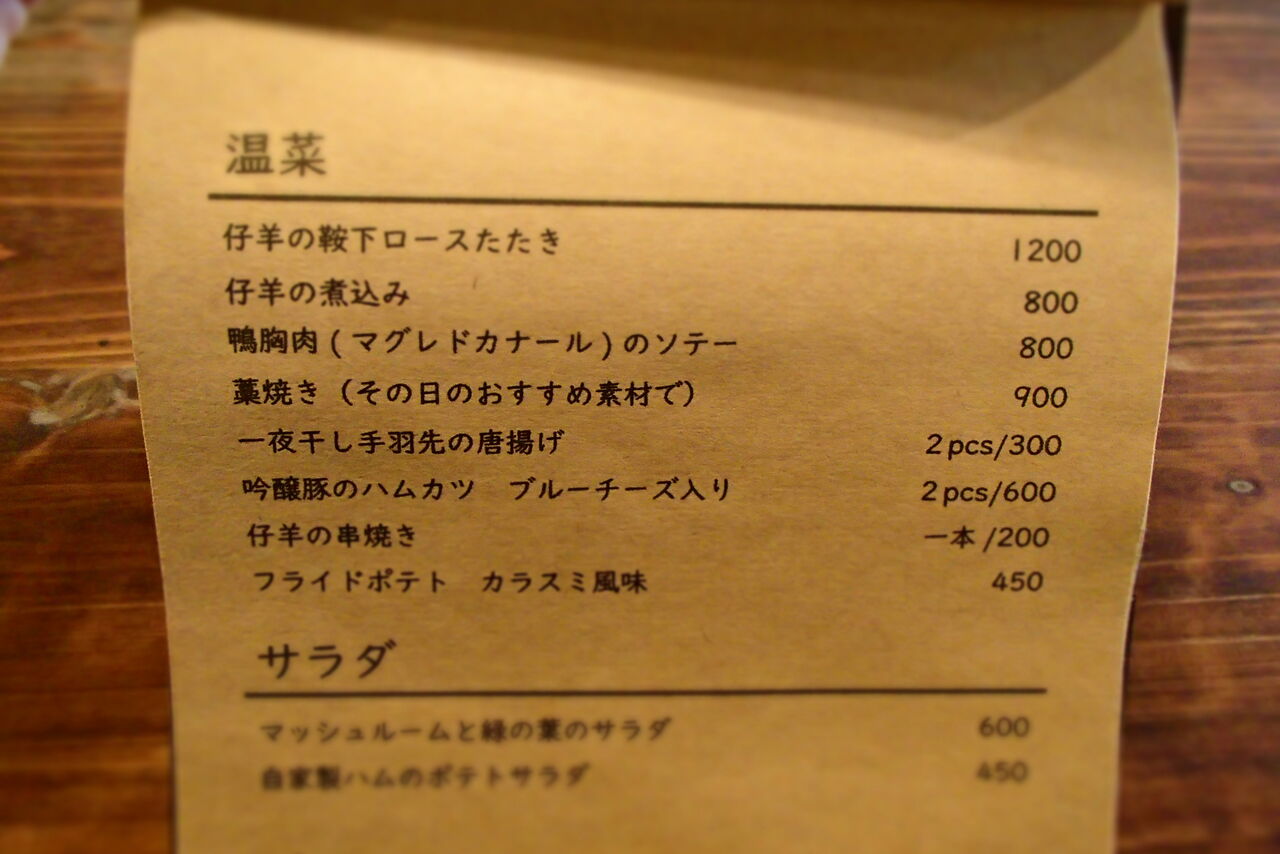 温菜
仔羊の鞍下ロースたたき 1200
仔羊の煮込み 800
鴨胸肉(マグレドカナール)のソテー 800
藁焼き(その日のおすすめ素材で) 900
一夜干し手羽先の唐揚げ 2pcs/300
吟醸豚のハムカツ ブルーチーズ入り 2pcs/600
仔羊の串焼き 一本/200
フライドポテト カラスミ風味 450
サラダ
マッシュルームと緑の葉のサラダ 600
自家製ハムのポテトサラダ 450